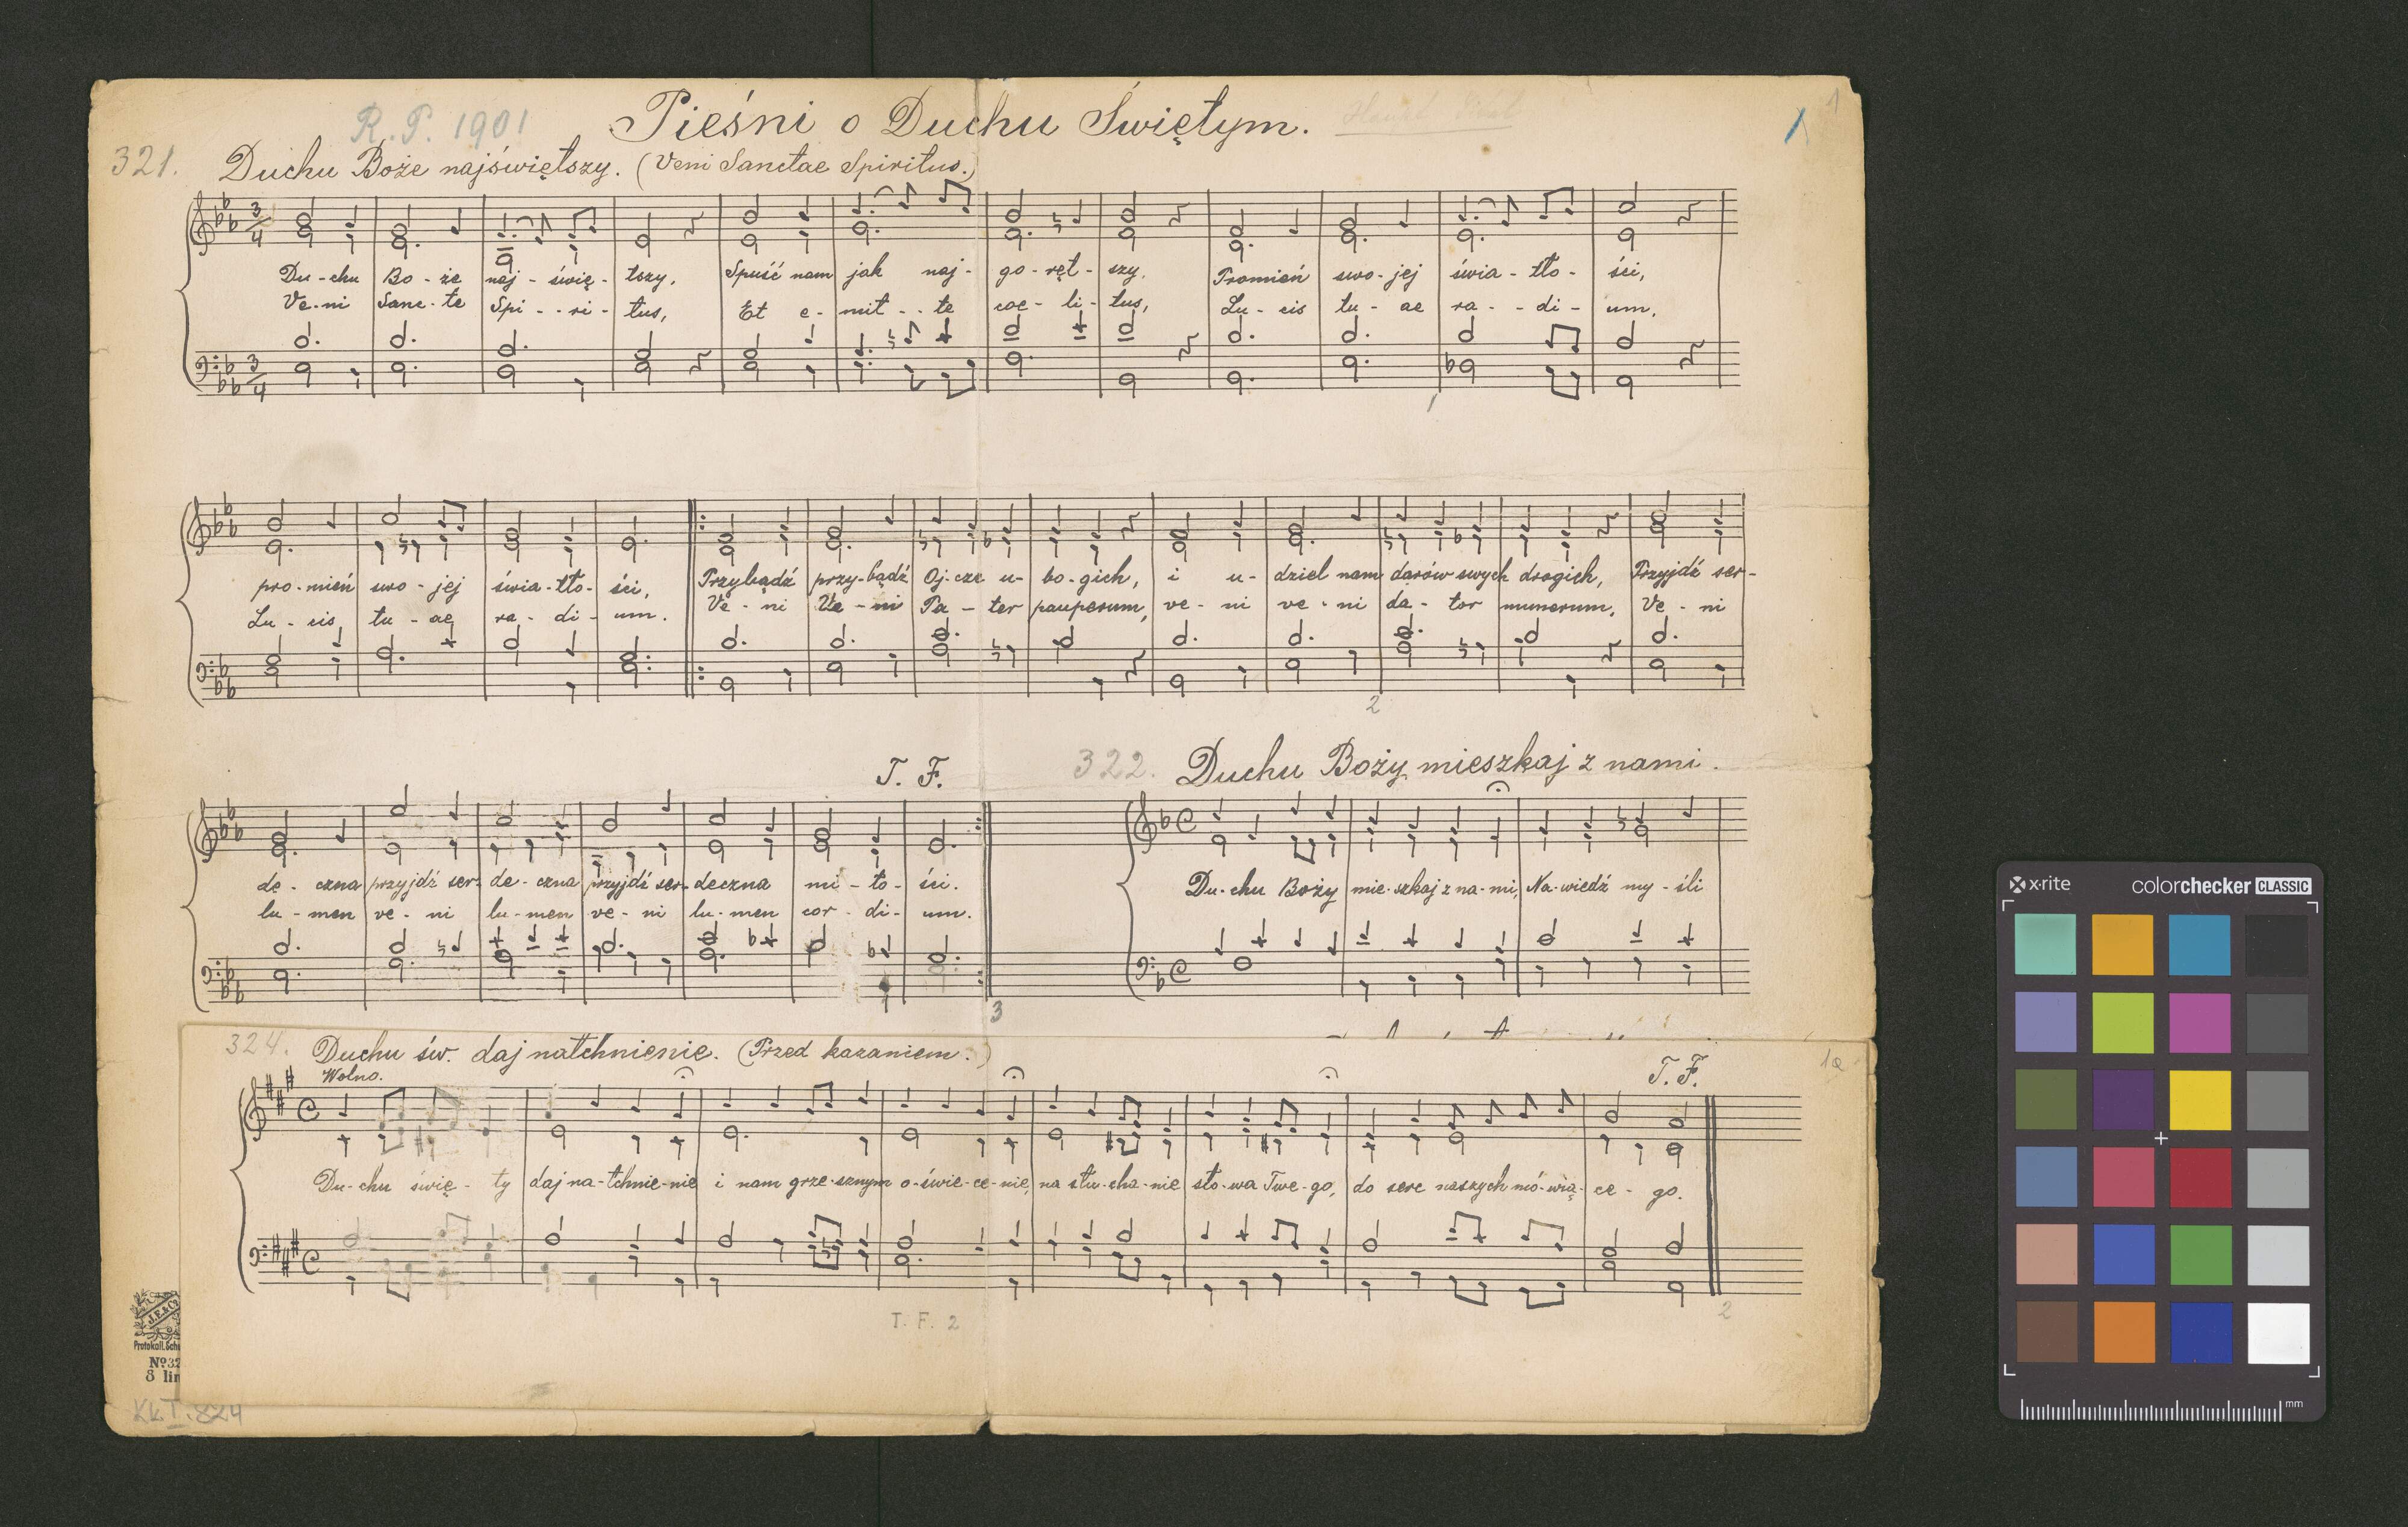 R. P. 1901 Pieśni o Duchu Świętym. 1 1
321. Duchu Boże najświętszy. (Veni Sanctae Spiritus.)
3/4
Du-chu Bo-że naj-świę-tszy, Spuść nam jak naj-go-ręt-szy, Promień swo-jej świa-tło-ści,
Ve-ni Sanc-te Spi--ri-tus, Et e-mit--te coe-li-tus, Lu-cis tu-ae ra--di-um,
3/4
pro-mień swo-jej świa-tło-ści, Przybądź przy-bądź Oj-cze u-bo-gich, i u-dziel nam darów swych drogich, Przyjdź ser-
Lu-cis tu-ae ra-di-um. Ve-ni Ve-ni Pa-ter pauperum, ve-ni ve-ni da-tor munerum, Ve-ni
2
T. F.
de-czna przyjdź ser-de-czna przyjdź ser-deczna mi-ło-ści.
lu-men ve-ni lu-men ve-ni lu-men cor-di-um.
3
322. Duchu Boży mieszkaj z nami.
Du-chu Boży mie-szkaj z na-mi, Na-wiedź my-śli
324. Duchu św. daj natchnienie. (Przed kazaniem.) 1a
Wolno. T. F.
Du-chu świę-ty daj na-tchnie-nie i nam grze-sznym o-świe-ce-nie, na słu-cha-nie sło-wa Twe-go, do serc naszych mó-wią-ce-go.
T. F. 2 2
J.E.&Co.
Protokoll. Schu
No 32
8 lin
KkI.824
x-rite colorchecker CLASSIC
mm